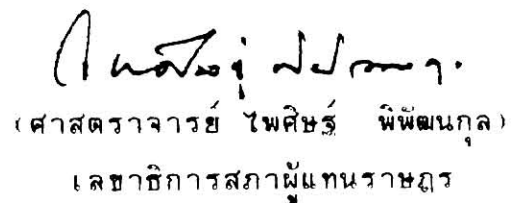 (ศาสตราจารย์ ไพศิษฐ์ พิพัฒนกุล)
เลขาธิการสภาผู้แทนราษฎร